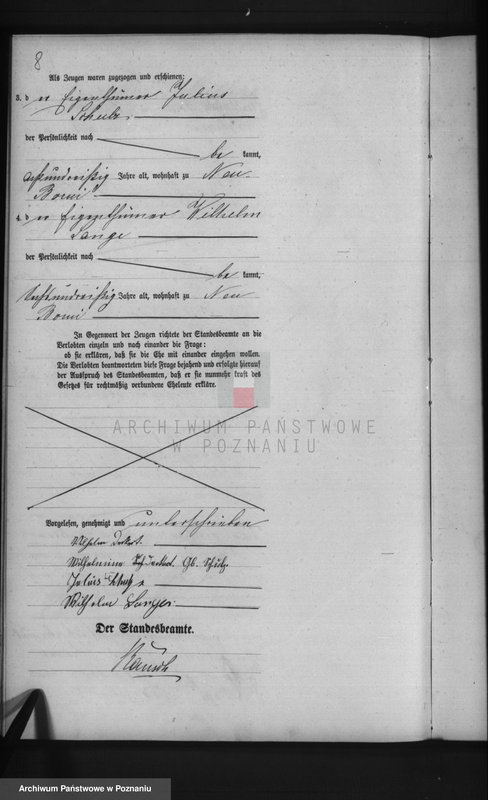 8
Als Zeugen waren zugezogen und erschienen:
3. der Eigenthümer Julius
Schulz
der Persönlichkeit nach
be kannt,
achtunddreißig Jahre alt, wohnhaft zu Neu-
Bomi
4. der Eigenthümer Wilhelm
Lange
der Persönlichkeit nach
be kannt,
Jahre alt, wohnhaft zu Neu
Bomi
In Gegenwart der Zeugen richtete der Standesbeamte an die
Verlobten einzeln und nach einander die Frage:
ob sie erklären, daß sie die Ehe mit einander eingehen wollen.
Die Verlobten beantworteten diese Frage bejahend und erfolgte hierauf
der Ausspruch des Standesbeamten, daß er sie nunmehr kraft des
Gesetzes für rechtmäßig verbundene Eheleute erkläre.
ARCHIWUM PAŃSTWOWE
W POZNANIU
Vorgelesen, genehmigt und unterschrieben
Wilhelm Deckert.
Wilhelmine Deckert. Gb. Schulz.
Julius Schulz
Wilhelm Lange
Der Standesbeamte.
Archiwum Państwowe w Poznaniu